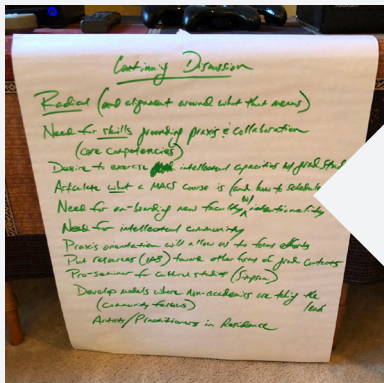 Continuing Discussion
Radical (and alignment around what that means)
Need for skills providing praxis & collaboration
(core competencies)
Desire to exercise intellectual capacities w/ grad
Articulate what a MACS course is (and how to schedule
Need for on-boarding new faculty w/ intentionality
Need for intellectual community
Praxis orientation will allow us to focus efforts
Put resources (IAS) toward other forms of grad
Pro-seminar for cultural studies (Simpson)
Develop models where non-academics are taking the
lead
(Community fellows)
Artists/Practitioners in Residence